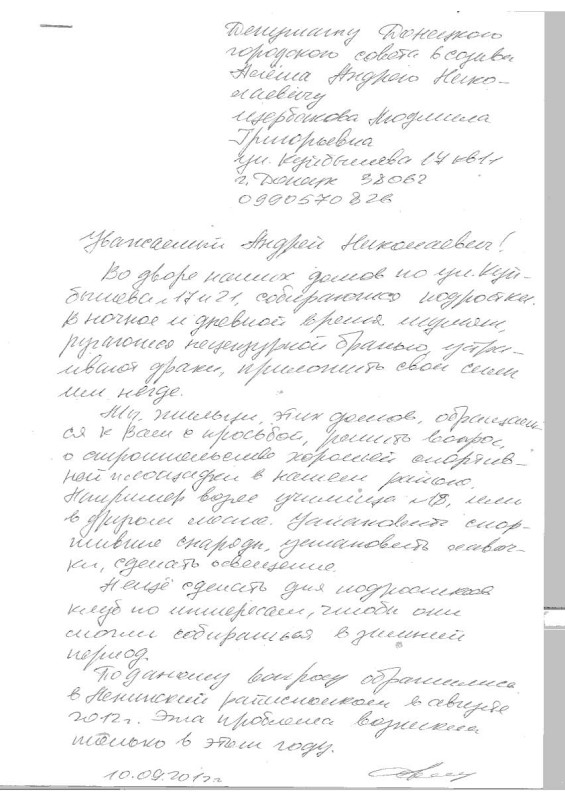 Депутату Донецкого
городского совета 6 созыва
Андрею Нико-
лаевичу
Щербакова Людмила
Григорьевна
ул. Куйбышева 17 кв 1
г. Донецк
Уважаемый Андрей Николаевич!
Во дворе наших домов по ул. Куй-
бышева 17 и 21, собираются подростки.
В ночное и дневной время шумят,
ругаются нецензурной бранью, устра-
ивают драки, приложить свои силы
им негде.
Мы, жильцы, этих домов, обращаем-
ся к Вам с просьбой, решить вопрос,
о строительстве хорошей спортив-
ной площадки в нашем районе.
Например возле училища №18, или
в другом месте. Установить спор-
тивные снаряды, установить лавоч-
ки, сделать освещение.
И ещё сделать для подростков
клуб по интересам, чтобы они
смогли собираться в зимний
период.
По даному вопросу обратились
в Ленинский райисполком в августе
2012г. Эта проблема возникла
только в этом году.
10.09.2012г.